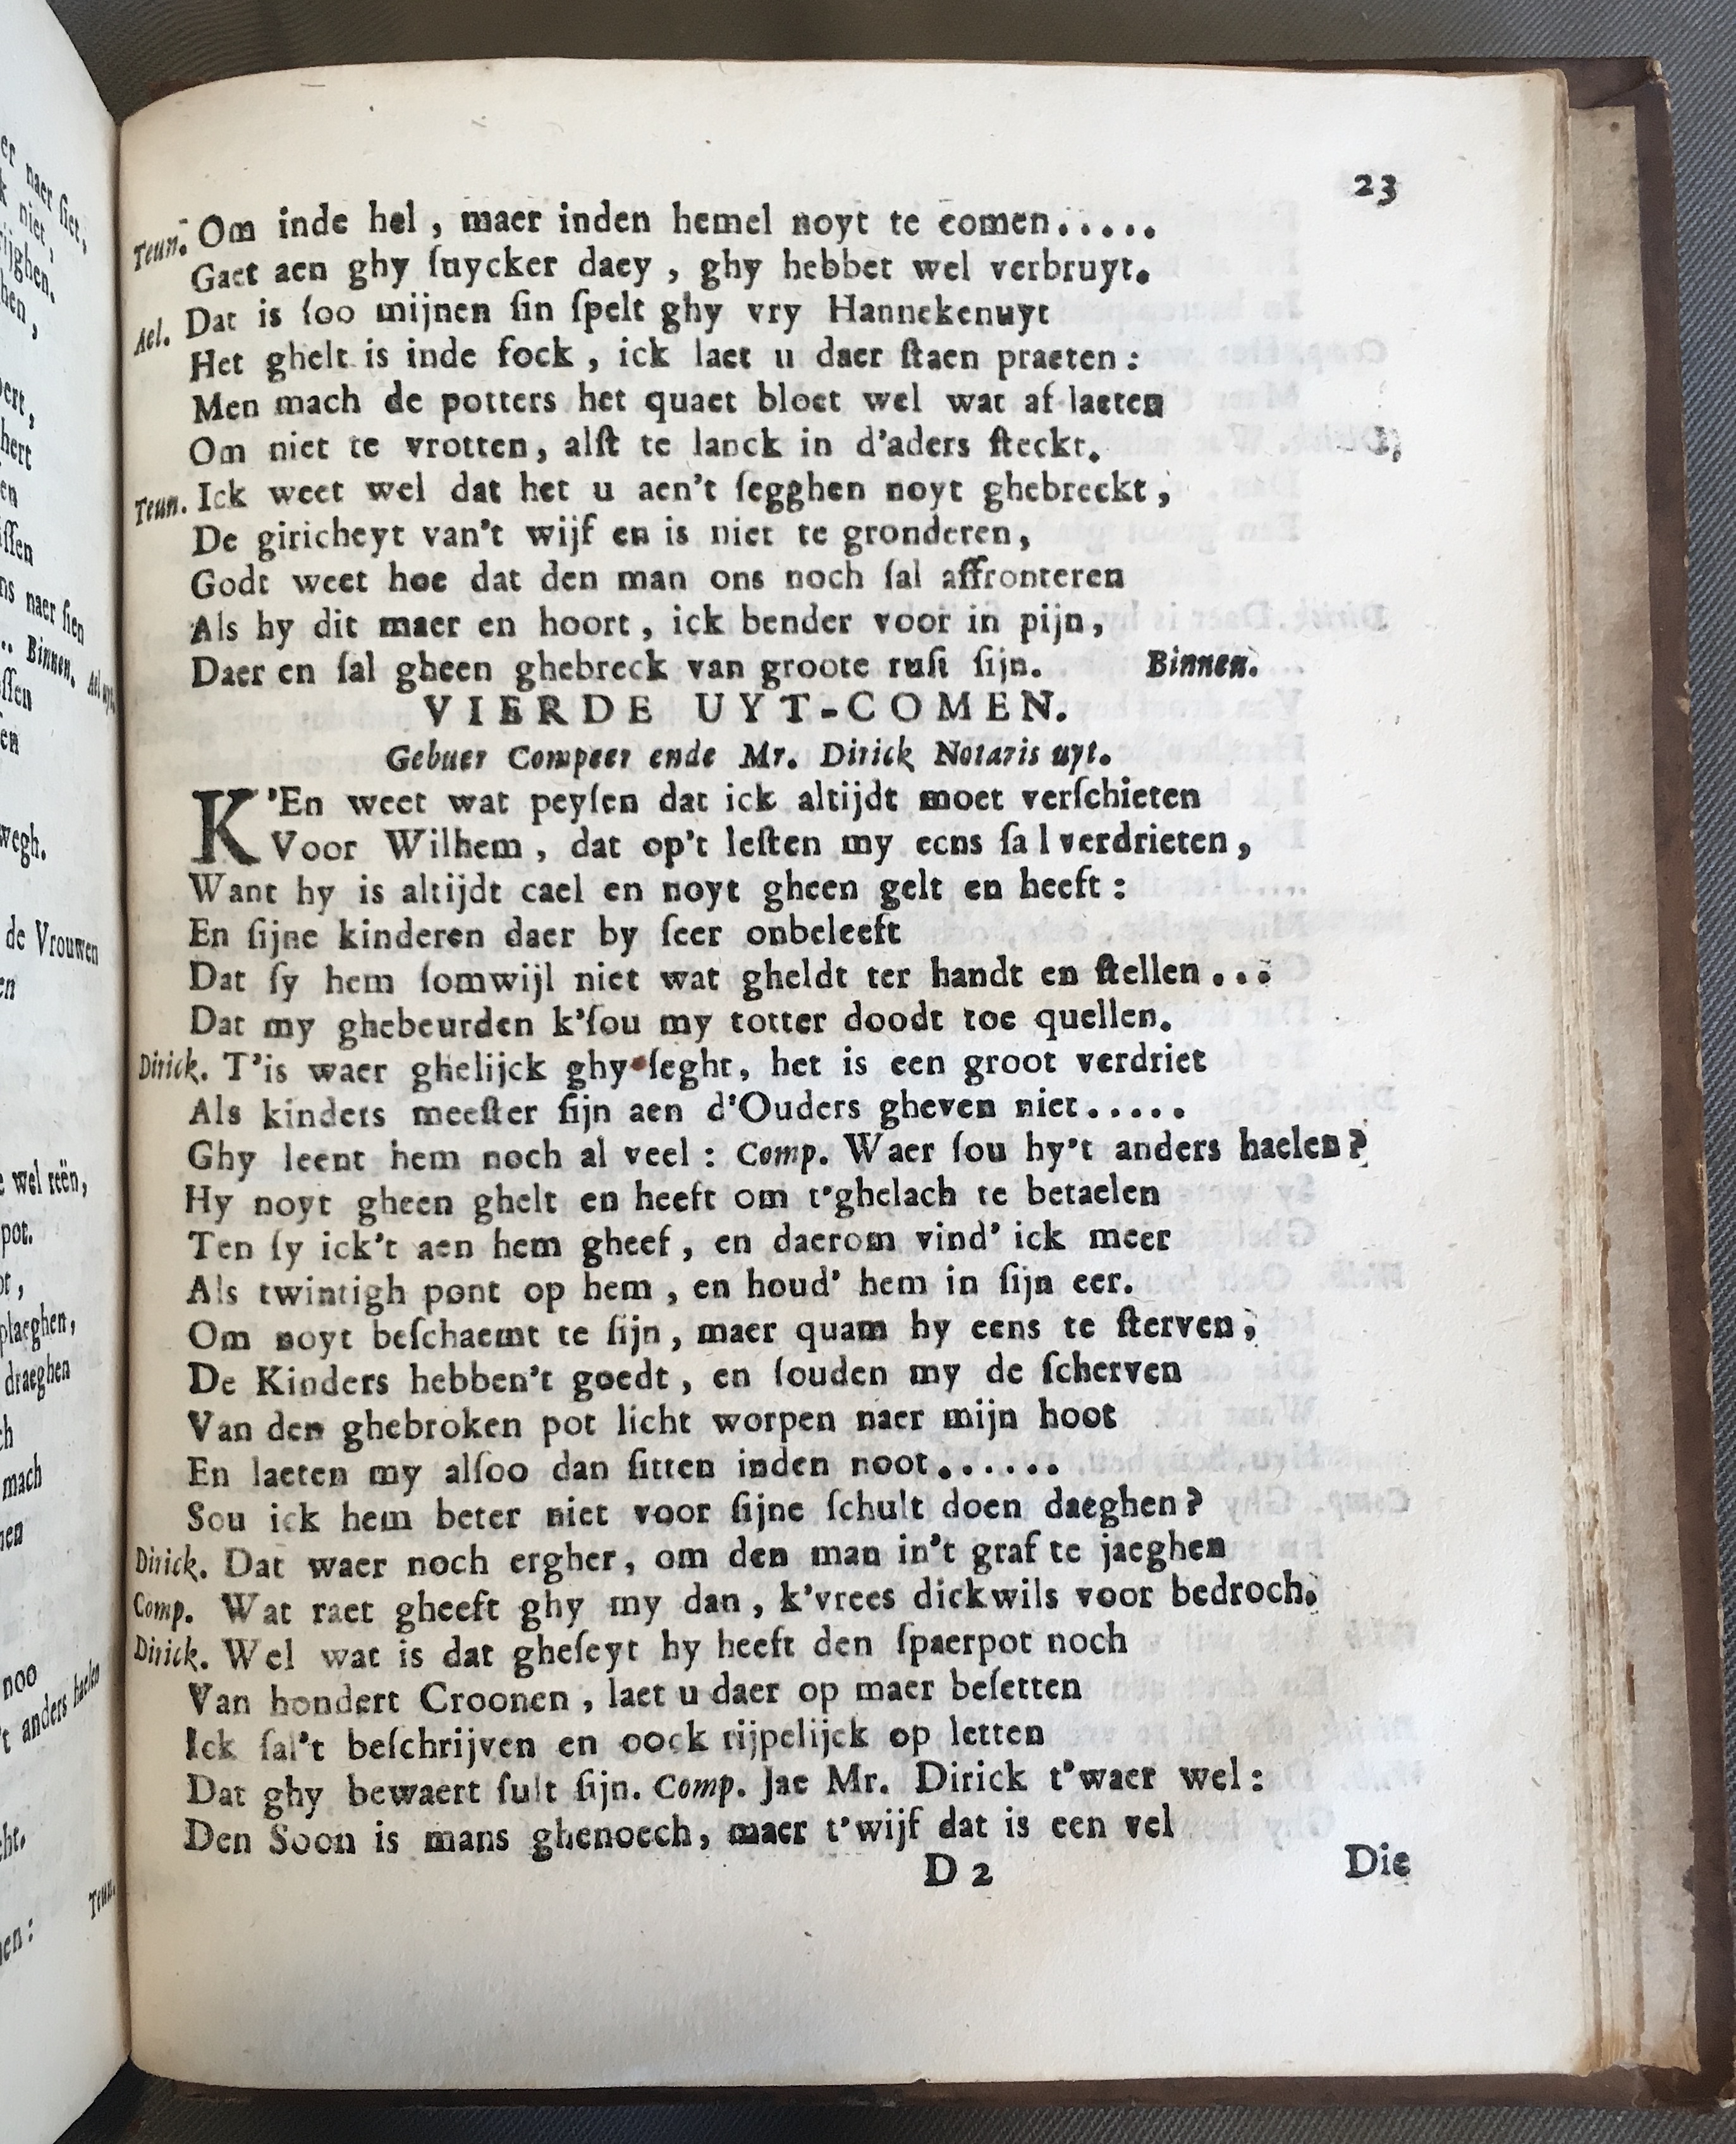 23
Teun. Om inde hel, maer inden hemel noyt te comen.....
Gaet aen ghy ſuycker daey, ghy hebbet wel verbruyt.
Ael. Dat is ſoo mijnen ſin ſpelt ghy vry Hannekenuyt
Het ghelt is inde fock, ick laet u daer ſtaen praeten:
Men mach de potters het quaet bloet wel wat af laeten
Om niet te vrotten, alſt te lanck in d'aders ſteckt.
Teun. Ick weet wel dat het u aen't ſegghen noyt ghebreckt,
De giricheyt van't wijf en is niet te gronderen,
Godt weet hoe dat den man ons noch ſal affronteren
Als hy dit maer en hoort, ick bender voor in pijn,
Daer en ſal gheen ghebreck van groote ruſt ſijn. Binnen.
VIERDE UYT-COMEN.
Gebuer Compeer ende Mr. Dirick Notaris uyt.
K'En weet wat peyſen dat ick altijdt moet verſchieten
Voor Wilhem, dat op't leſten my eens ſal verdrieten,
Want hy is altijdt cael en noyt gheen gelt en heeft:
En ſijne kinderen daer by ſeer onbeleeft
Dat ſy hem ſomwijl niet wat gheldt ter handt en ſtellen...
Dat my ghebeurden k'ſou my totter doodt toe quellen.
Dirick. T'is waer ghelijck ghy ſeght, het is een groot verdriet
Als kinders meeſter ſijn aen d'Ouders gheven niet.....
Ghy leent hem noch al veel: Comp. Waer ſou hy't anders haelen?
Hy noyt gheen ghelt en heeft om t'ghelach te betaelen
Ten ſy ick't aen hem gheef, en daerom vind' ick meer
Als twintigh pont op hem, en houd' hem in ſijn eer.
Om noyt beſchaemt te ſijn, maer quam hy eens te ſterven,
De Kinders hebben't goedt, en ſouden my de ſcherven
Van den ghebroken pot licht worpen naer mijn hoot
En laeten my alſoo dan ſitten inden noot......
Sou ick hem beter niet voor ſijne ſchult doen daeghen?
Dirick. Dat waer noch ergher, om den man in't graf te jaeghen
Comp. Wat raet gheeft ghy my dan, k'vrees dickwils voor bedroch.
Dirick. Wel wat is dat gheſeyt hy heeft den ſpaerpot noch
Van hondert Croonen, laet u daer op maer beſetten
Ick ſal't beſchrijven en oock rijpelijck op letten
Dat ghy bewaert ſult ſijn. Comp. Jae Mr. Dirick t'waer wel:
Den Soon is mans ghenoech, maer t'wijf dat is een vel
D 2
Die